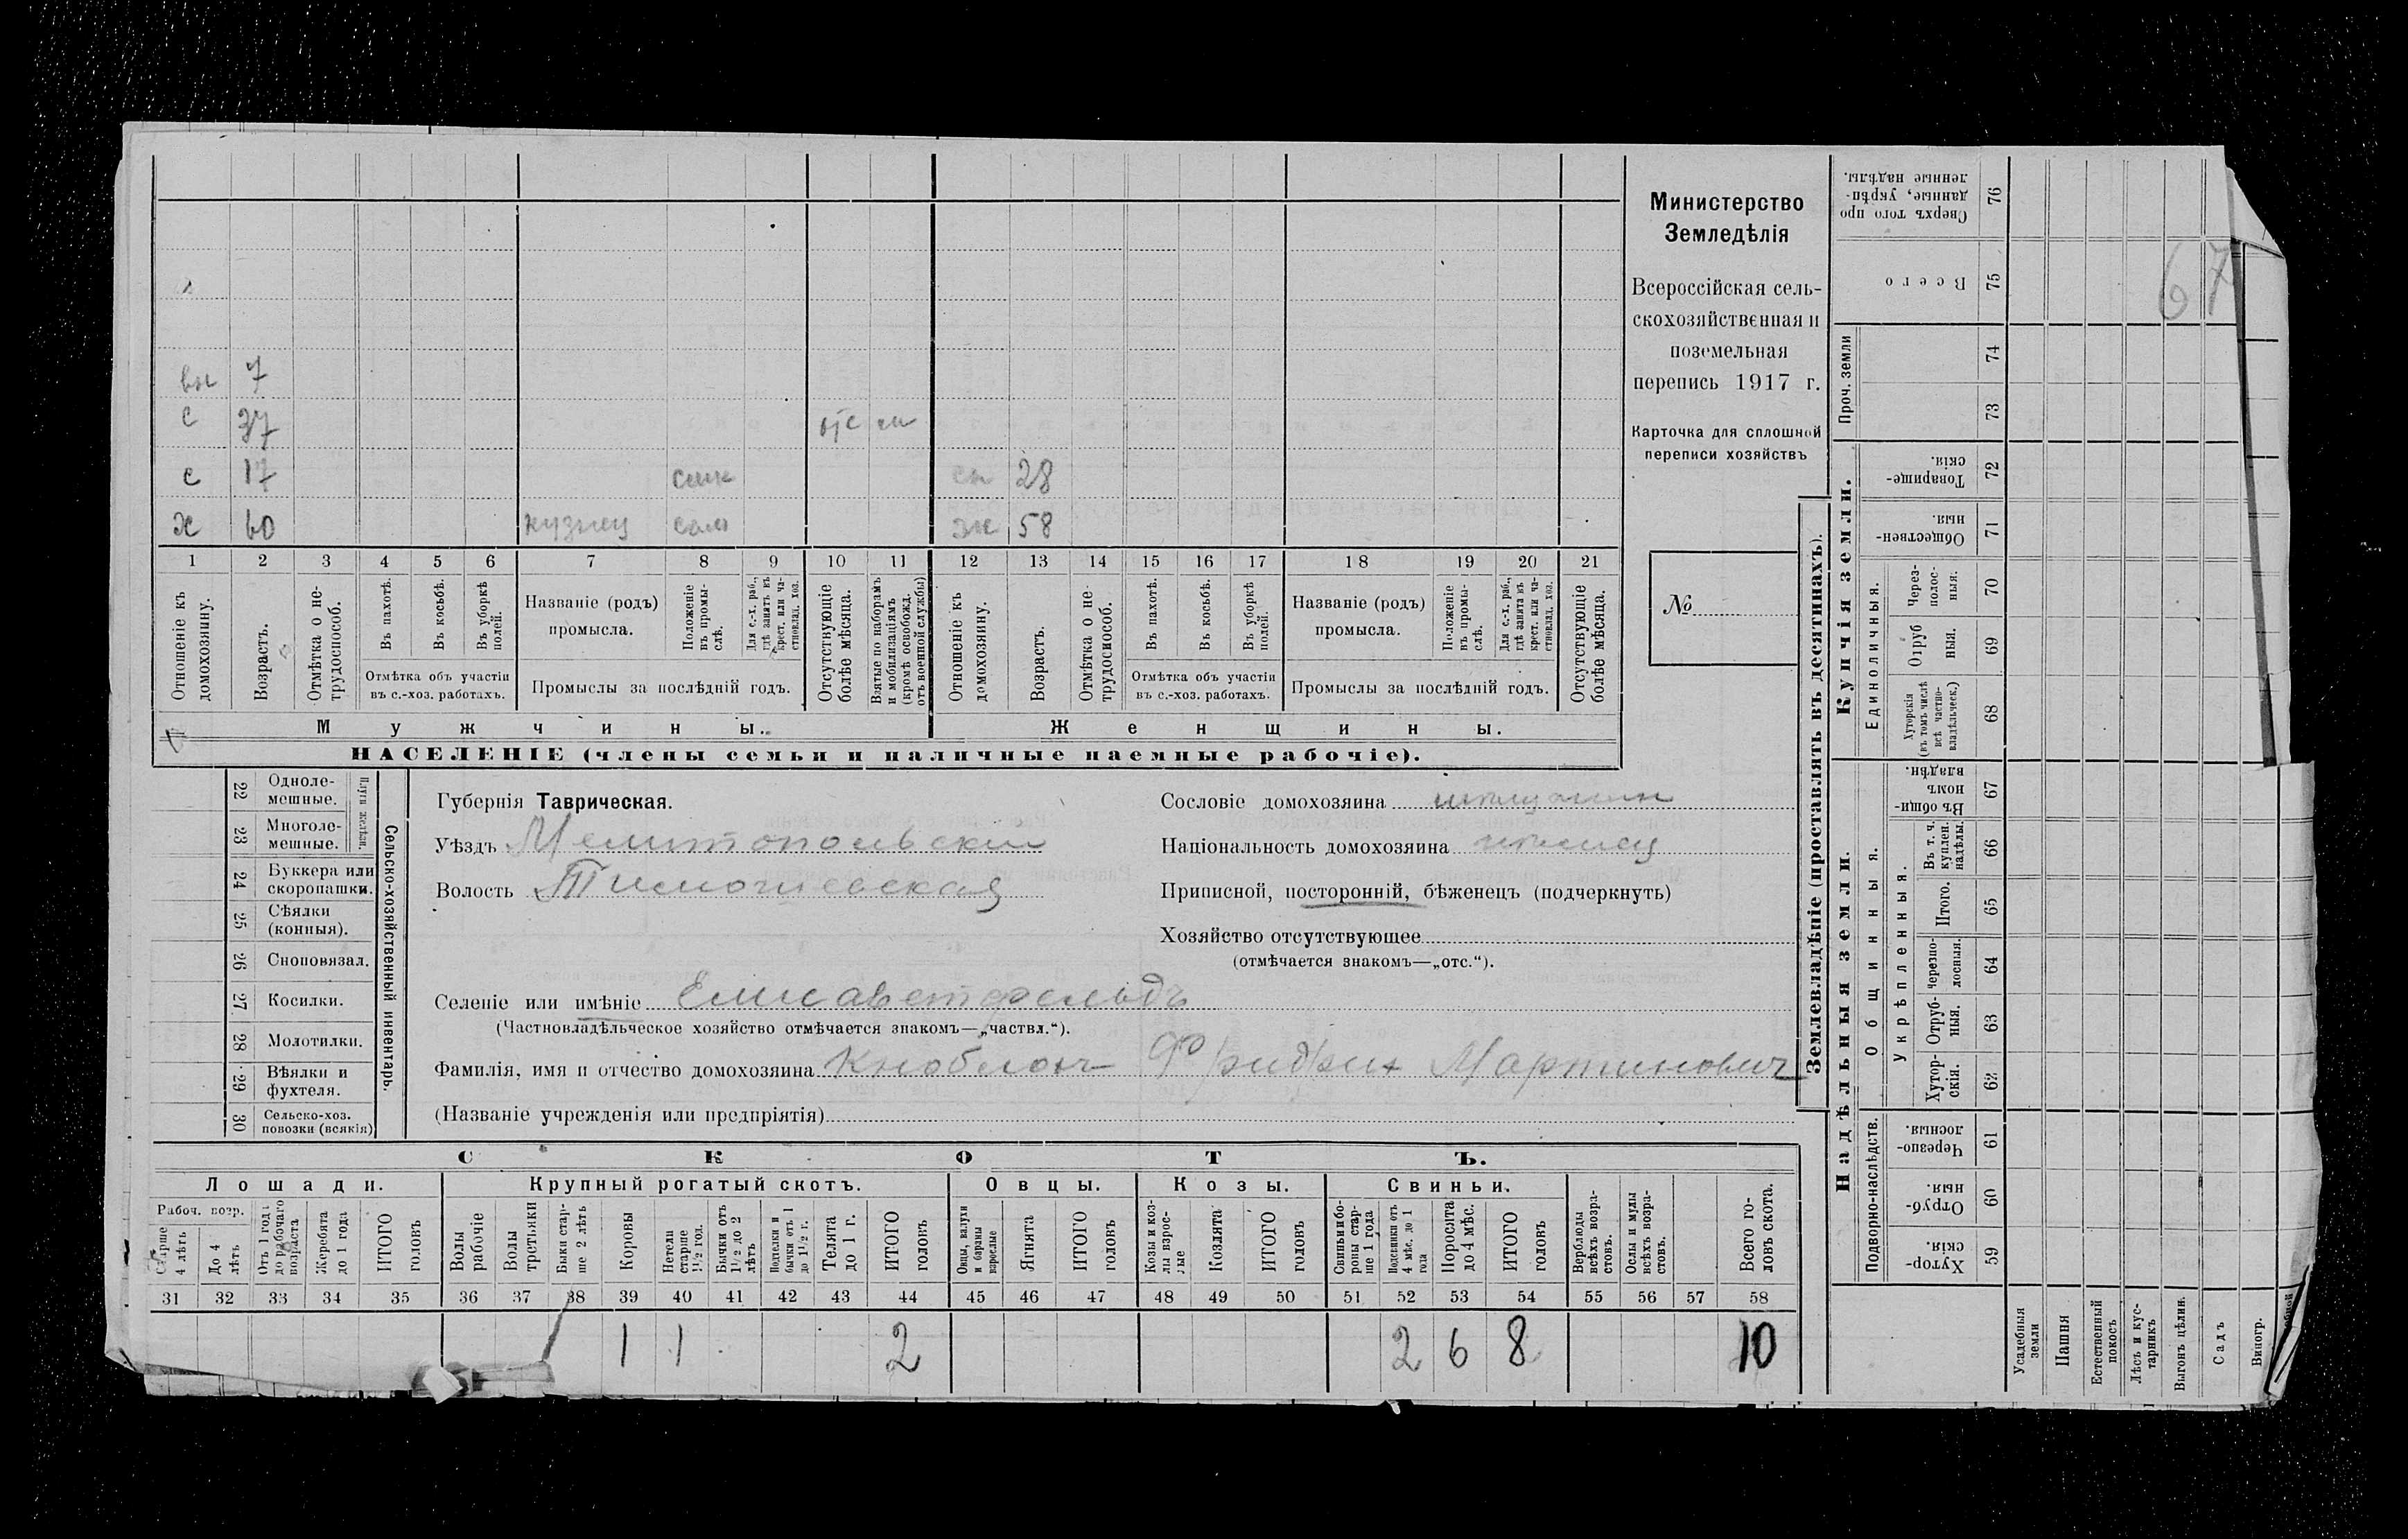 вн 7
с 37 отс м
с 17 28
х 60 кузнец сам 58
1 2 3 4 5 6 7 8 9 10 11 12 13 14 15 16 17 18 19 20 21
Отношеніе къ домохозяину.
Возрастъ.
Отмѣтка о не-трудоспособ.
Въ пахотѣ.
Въ косьбѣ.
Въ уборкѣ полей.
Отмѣтка объ участіи
въ с.-хоз. работахъ.
Названіе (родъ)
промысла.
Положеніе въ промы-слѣ.
Для с.-х. раб., гдѣ занятъ въ крест. или ча-стновлад. хоз.
Промыслы за послѣдній годъ.
Отсутствующіе болѣе мѣсяца.
Взятые по наборамъ и мобилизаціямъ (кромѣ освобожд. отъ военной службы)
Отношеніе къ домохозяину.
Возрастъ.
Отмѣтка о не-трудоспособ.
Въ пахотѣ.
Въ косьбѣ.
Въ уборкѣ полей.
Отмѣтка объ участіи
въ с.-хоз. работахъ.
Названіе (родъ)
промысла.
Положеніе въ промы-слѣ.
Для с.-х. раб., гдѣ занята въ крест. или ча-стновлад. хоз.
Промыслы за послѣдній годъ.
Отсутствующіе болѣе мѣсяца.
Мужчины.
Женщины.
НАСЕЛЕНІЕ (члены семьи и наличные наемные рабочіе).
Министерство
Земледѣлія
Всероссійская сель-
скохозяйственная и
поземельная
перепись 1917 г.
Карточка для сплошной
переписи хозяйствъ
№
22 Одноле-мешные.
23 Многоле-мешные.
Плуги желѣзн.
24 Буккера или скоропашки.
25 Сѣялки (конныя).
26 Сноповязал.
27 Косилки.
28 Молотилки.
29 Вѣялки и фухтеля.
30 Сельско-хоз. повозки (всякія)
Сельско-хозяйственный инвентарь.
Губернія Таврическая.
Уѣздъ Мелитопольский
Волость Тимошевская
Сословіе домохозяина мещанин
Національность домохозяина немец
Приписной, посторонній, бѣженецъ (подчеркнуть)
Хозяйство отсутствующее
(отмѣчается знакомъ—„отс.“).
Селеніе или имѣніе Елисаветфельдъ
(Частновладѣльческое хозяйство отмѣчается знакомъ—„частвл.“).
Фамилія, имя и отчество домохозяина Кноблох Фридрих Мартинович
(Названіе учрежденія или предпріятія)
СКОТЪ.
Лошади.
Крупный рогатый скотъ.
Овцы.
Козы.
Свиньи.
Рабоч. возр.
Старше 4 лѣтъ
До 4 лѣтъ
Отъ 1 года до рабочаго возраста
Жеребята до 1 года
ИТОГО головъ
Волы рабочіе
Волы третьяки
Быки стар-ше 2 лѣтъ
Коровы
Нетели старше 1½ год.
Бычки отъ 1½ до 2 лѣтъ
Подтелки и бычки отъ 1 до 1½ г.
Телята до 1 г.
ИТОГО головъ
Овцы, валухи и бараны взрослые
Ягнята
ИТОГО головъ
Козы и коз-лы взрос-лые
Козлята
ИТОГО головъ
Свиньи и бо-ровы стар-ше 1 года
Подсвинки отъ 4 мѣс. до 1 года
Поросята до 4 мѣс.
ИТОГО головъ
Верблюды всѣхъ возра-стовъ.
Ослы и мулы всѣхъ возра-стовъ.
Всего го-ловъ скота.
31 32 33 34 35 36 37 38 39 40 41 42 43 44 45 46 47 48 49 50 51 52 53 54 55 56 57 58
1 1 2 2 6 8 10
Землевладѣніе (проставлять въ десятинахъ).
Купчія земли.
Надѣльныя земли.
Сверхъ того про данные, укрѣп-ленные надѣлы. 76
Всего 75
67
Проч. земли
74
73
Товарище-скія. 72
Обществен-ныя. 71
Единоличныя.
Через-полос-ныя. 70
Отруб ныя. 69
Хуторскія (въ томъ числѣ всѣ частно-владѣльческ.) 68
Общинныя.
Въ общи-номъ владѣн. 67
Укрѣпленныя.
Въ т. ч. куплен. надѣлы. 66
Итого. 65
Черезпо-лосныя. 64
Отруб-ныя. 63
Хутор-скія. 62
Подворно-наслѣдств.
Черезпо-лосныя. 61
Отруб-ныя. 60
Хутор-скія. 59
Усадебныя земли
Пашня
Естественный покосъ
Лѣсъ и кус-тарникъ
Выгонъ цѣлин.
Садъ
Виногр.